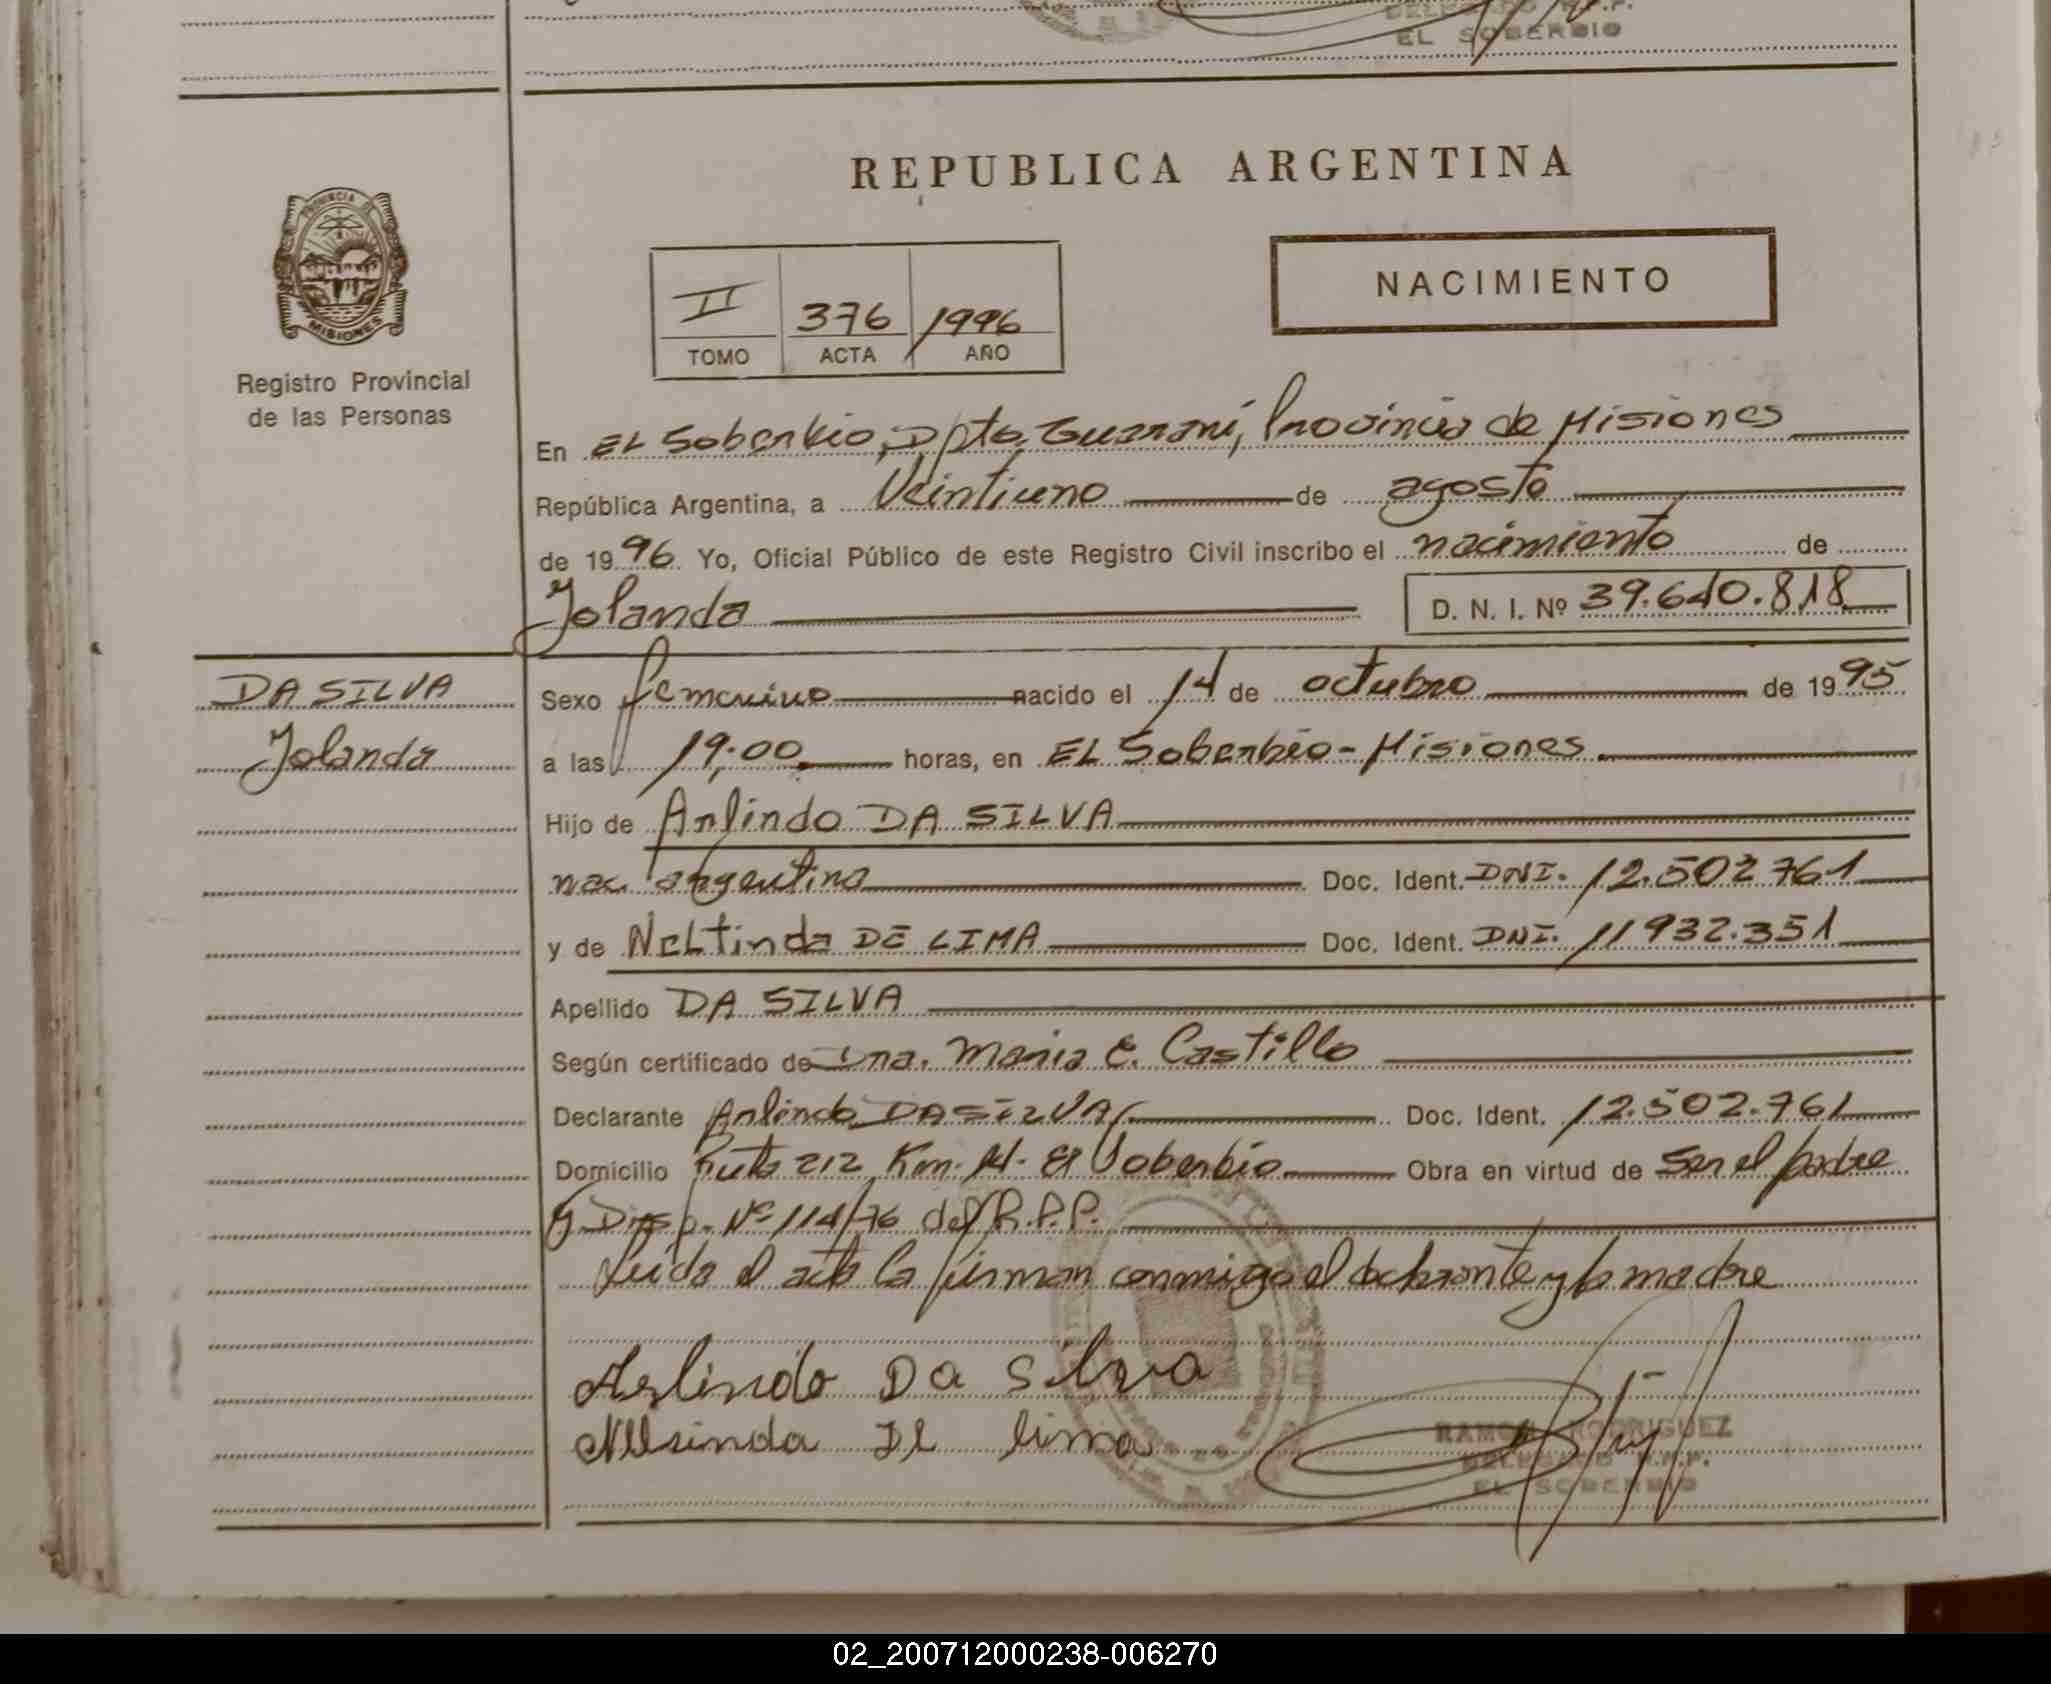 EL SOBERBIO
REPUBLICA ARGENTINA
PROVINCIA DE
MISIONES
Registro Provincial
de las Personas
II 376 1996
TOMO ACTA AÑO
NACIMIENTO
En EL Soberbio, Dpto. Guaraní, Provincia de Misiones
República Argentina, a Veintiuno de agosto
de 1996 Yo, Oficial Público de este Registro Civil inscribo el nacimiento de
Yolanda D. N. I. Nº 39.640.818
DA SILVA
Yolanda
Sexo femenino nacido el 14 de octubro de 1995
a las 19,00 horas, en EL Soberbio - Misiones
Hijo de Arlindo DA SILVA
nac. argentina Doc. Ident. DNI. 12.502.761
y de Neltinda DE LIMA Doc. Ident. DNI. 11932.351
Apellido DA SILVA
Según certificado de Dra. Maria E. Castillo
Declarante Arlindo DA SILVA Doc. Ident. 12.502.761
Domicilio Ruta 212 Km. 14. El Soberbio Obra en virtud de Ser el padre
y Disp. Nº 114/76 del R.P.P.
Leida el acta la firman conmigo el declarante y la madre
Arlindo Da Silva
de lima
RAMON RODRIGUEZ
DELEGADO R.P.P.
EL SOBERBIO
02_200712000238-006270